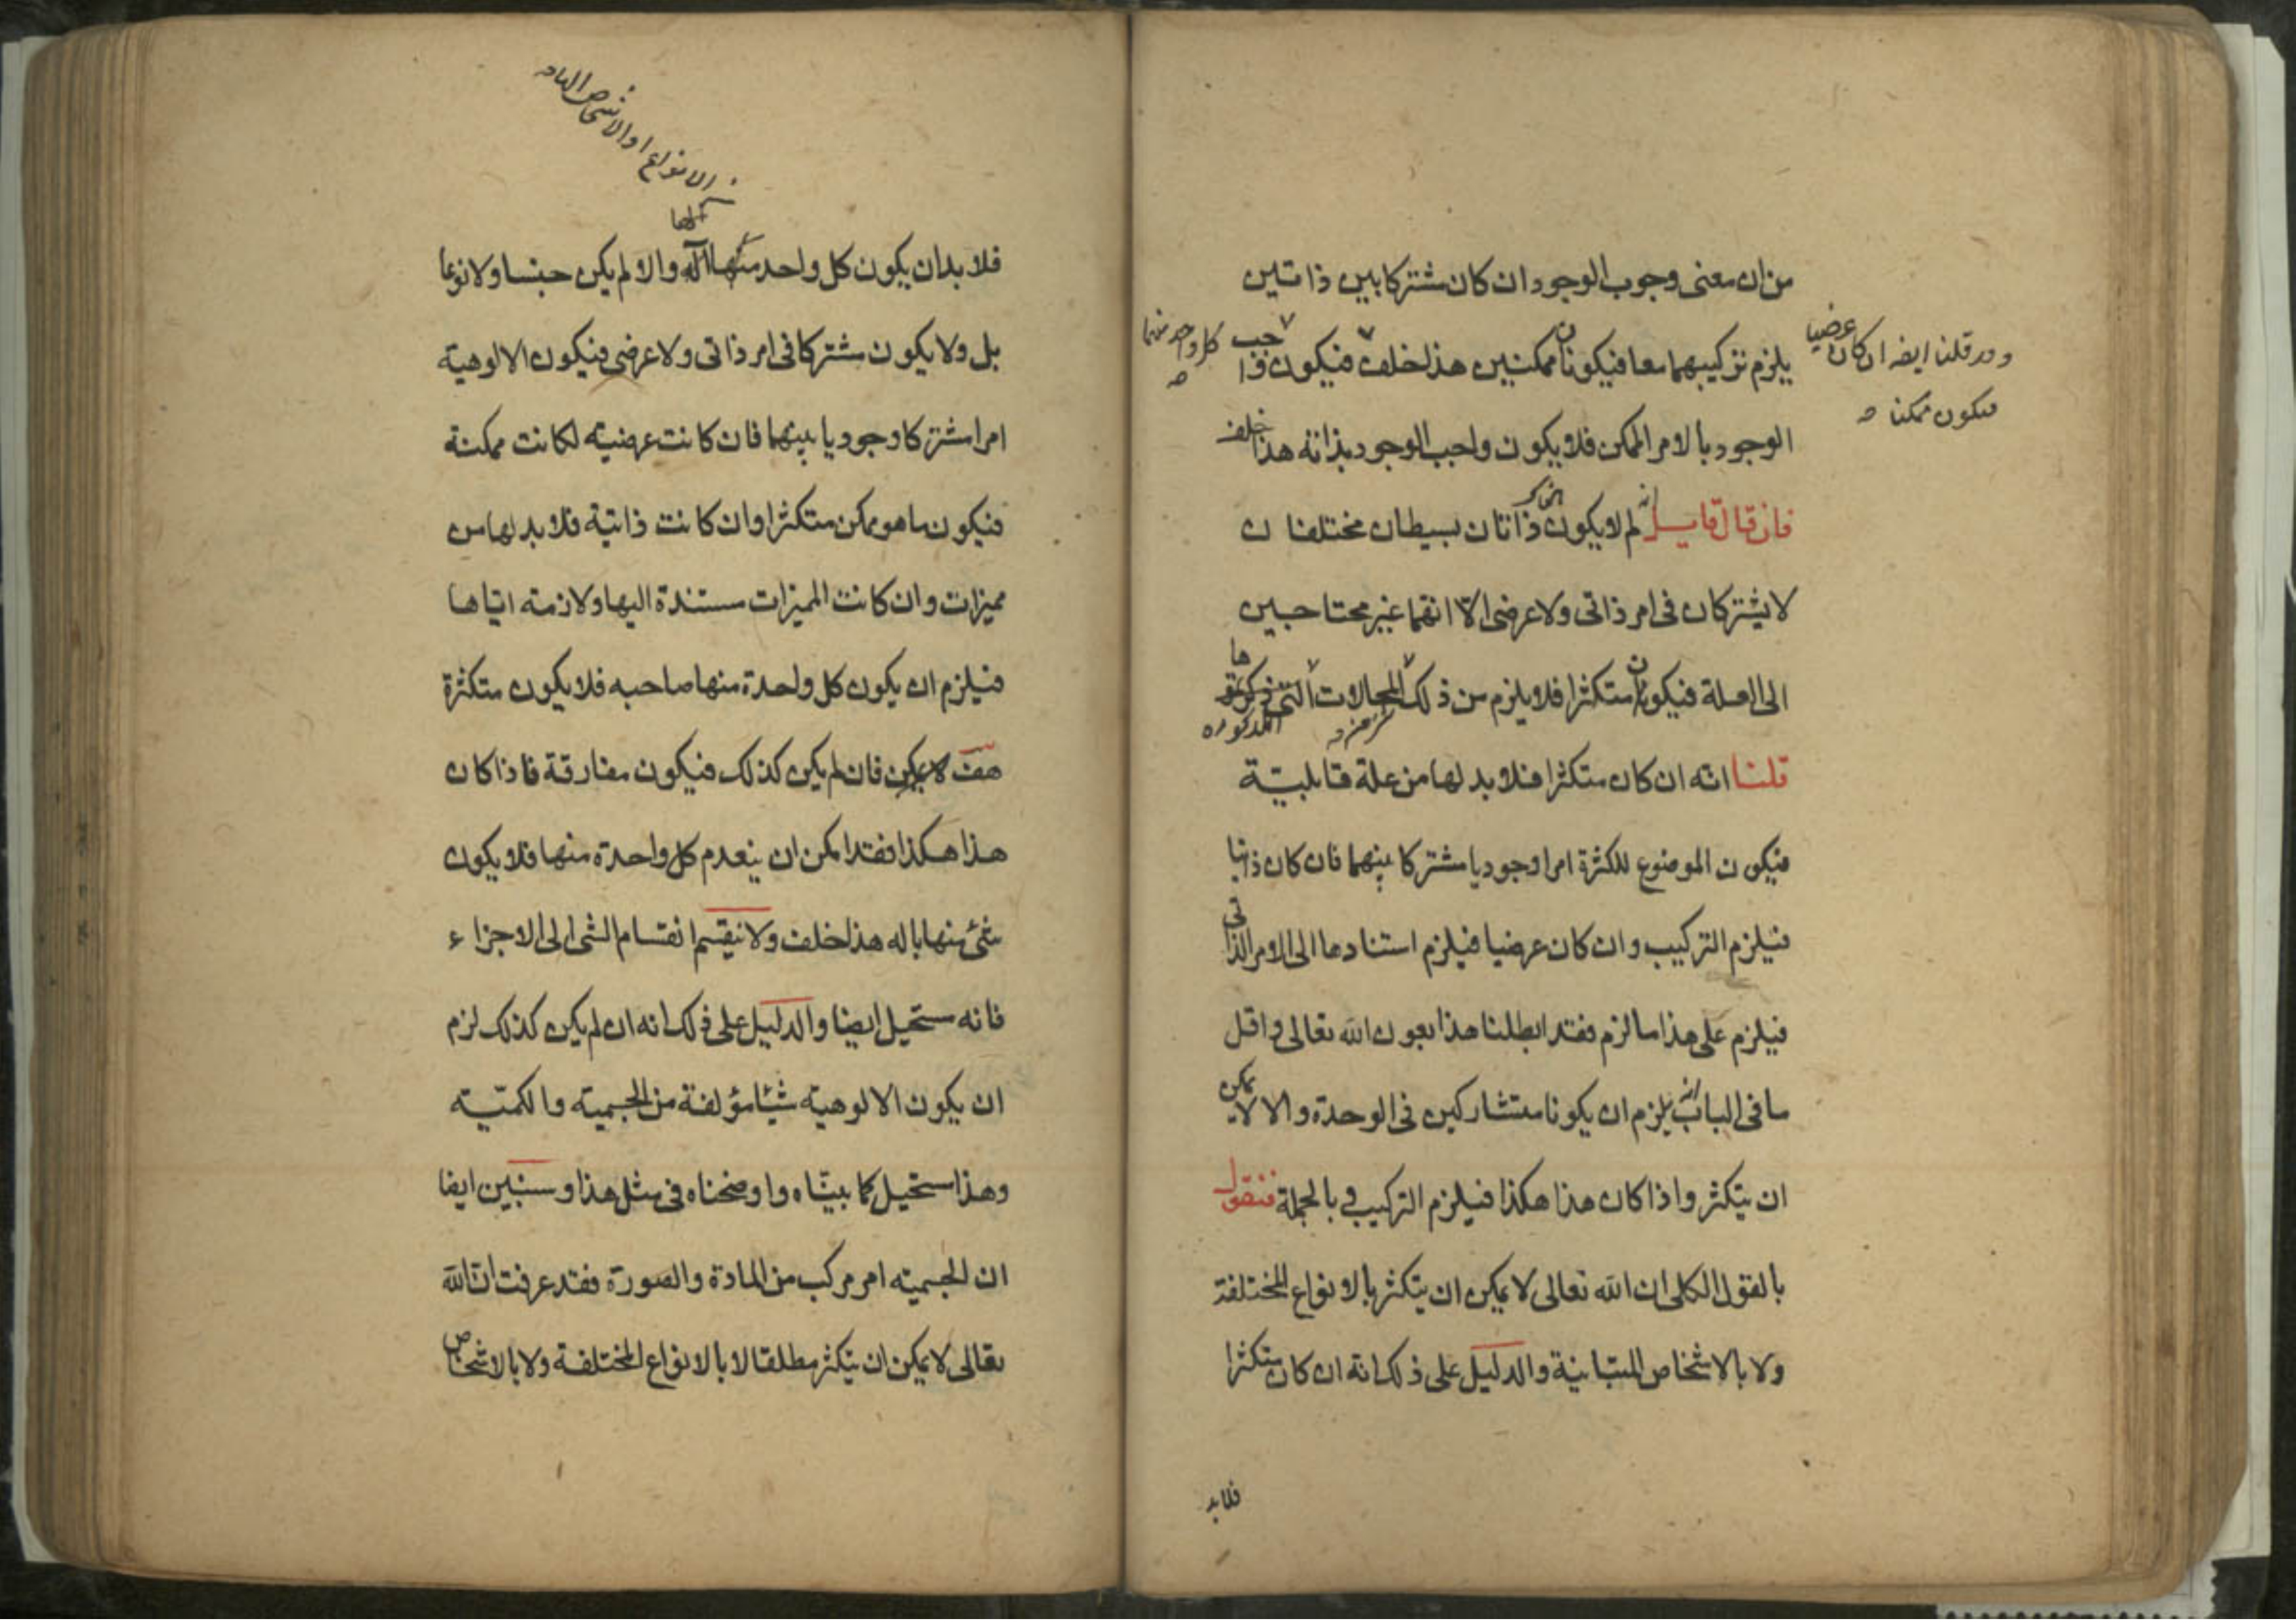 من ان معنى وجوب الوجود ان كان مشتركا بين ذاتين
يلزم تركيبهما معا فيكونان ممكنين هذا خلف فيكون واجب
الوجود بالامر الممكن فلا يكون واجب الوجود بذاته هذا خلف
فان قال قايل لم لا يكون ذاتان بسيطان مختلفان
لا يشتركان فى امر ذاتى ولا عرضى الّا انهما غير محتاجين
الى العلة فيكونان متكثرا فلا يلزم من ذلك المحالات التى
قلنا انه ان كان متكثرا فلا بد لها من علة قابلية
فيكون الموضوع للكثرة امرا وجوديا مشتركا بينهما فان كان ذاتيا
فيلزم التركيب وان كان عرضيا فيلزم استنادها الى الامر الذاتى
فيلزم على هذا ما لزم فقد ابطلنا هذا بعون الله تعالى واقل
ما فى الباب انه يلزم ان يكونا متشاركين فى الوحدة والا لا يمكن
ان يتكثر واذا كان هذا هكذا فيلزم التركيب وبالجملة فنقول
بالقول الكلى ان الله تعالى لا يمكن ان يتكثر بالانواع المختلفة
ولا بالاشخاص المتباينة والدليل على ذلك انه ان كان متكثرا
فلا بد
كل واحد منهما
وقد قلنا ايضه ان كان عرضيا
فيكون ممكنا
المذكوره
الانواع او الاشخاص
كلها
فلا بد ان يكون كل واحد منها اله والا لم يكن جنسا ولا نوعا
بل ولا يكون مشتركا فى امر ذاتى ولا عرضى فيكون الالوهية
امرا مشتركا وجوديا بينهما فان كانت عرضية لكانت ممكنة
فيكون ما هو ممكن متكثرا وان كانت ذاتية فلا بد لها من
مميزات وان كانت المميزات مستندة اليها ولازمة اياها
فيلزم ان يكون كل واحدة منها صاحبه فلا يكون متكثرة
هف لا يمكن فان لم يكن كذلك فيكون مفارقة فاذا كان
هذا هكذا فقد امكن ان ينعدم كل واحدة منها فلا يكون
شئ منها باله هذا خلف ولا ينقسم انقسام الشى الى الاجزاء
فانه مستحيل ايضا والدليل على ذلك انه ان لم يكن كذلك لزم
ان يكون الالوهية شيئا مؤلفة من الجسمية والكمية
وهذا مستحيل كما بيناه واوضحناه فى مثل هذا وسنبين ايضا
ان الجسمية امر مركب من المادة والصورة فقد عرفت ان الله
تعالى لا يمكن ان يتكثر مطلقا لا بالانواع المختلفة ولا بالاشخاص